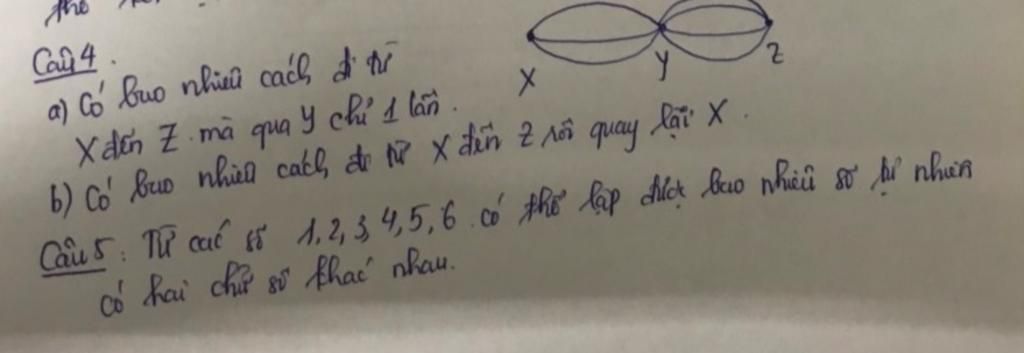 thể
Câu 4.
a) Có bao nhiêu cách đi từ
X đến Z mà qua Y chỉ 1 lần.
b) Có bao nhiêu cách đi từ X đến Z rồi quay lại X.
X
Y
Z
Câu 5: Từ các số 1, 2, 3, 4, 5, 6 có thể lập được bao nhiêu số tự nhiên
có hai chữ số khác nhau.